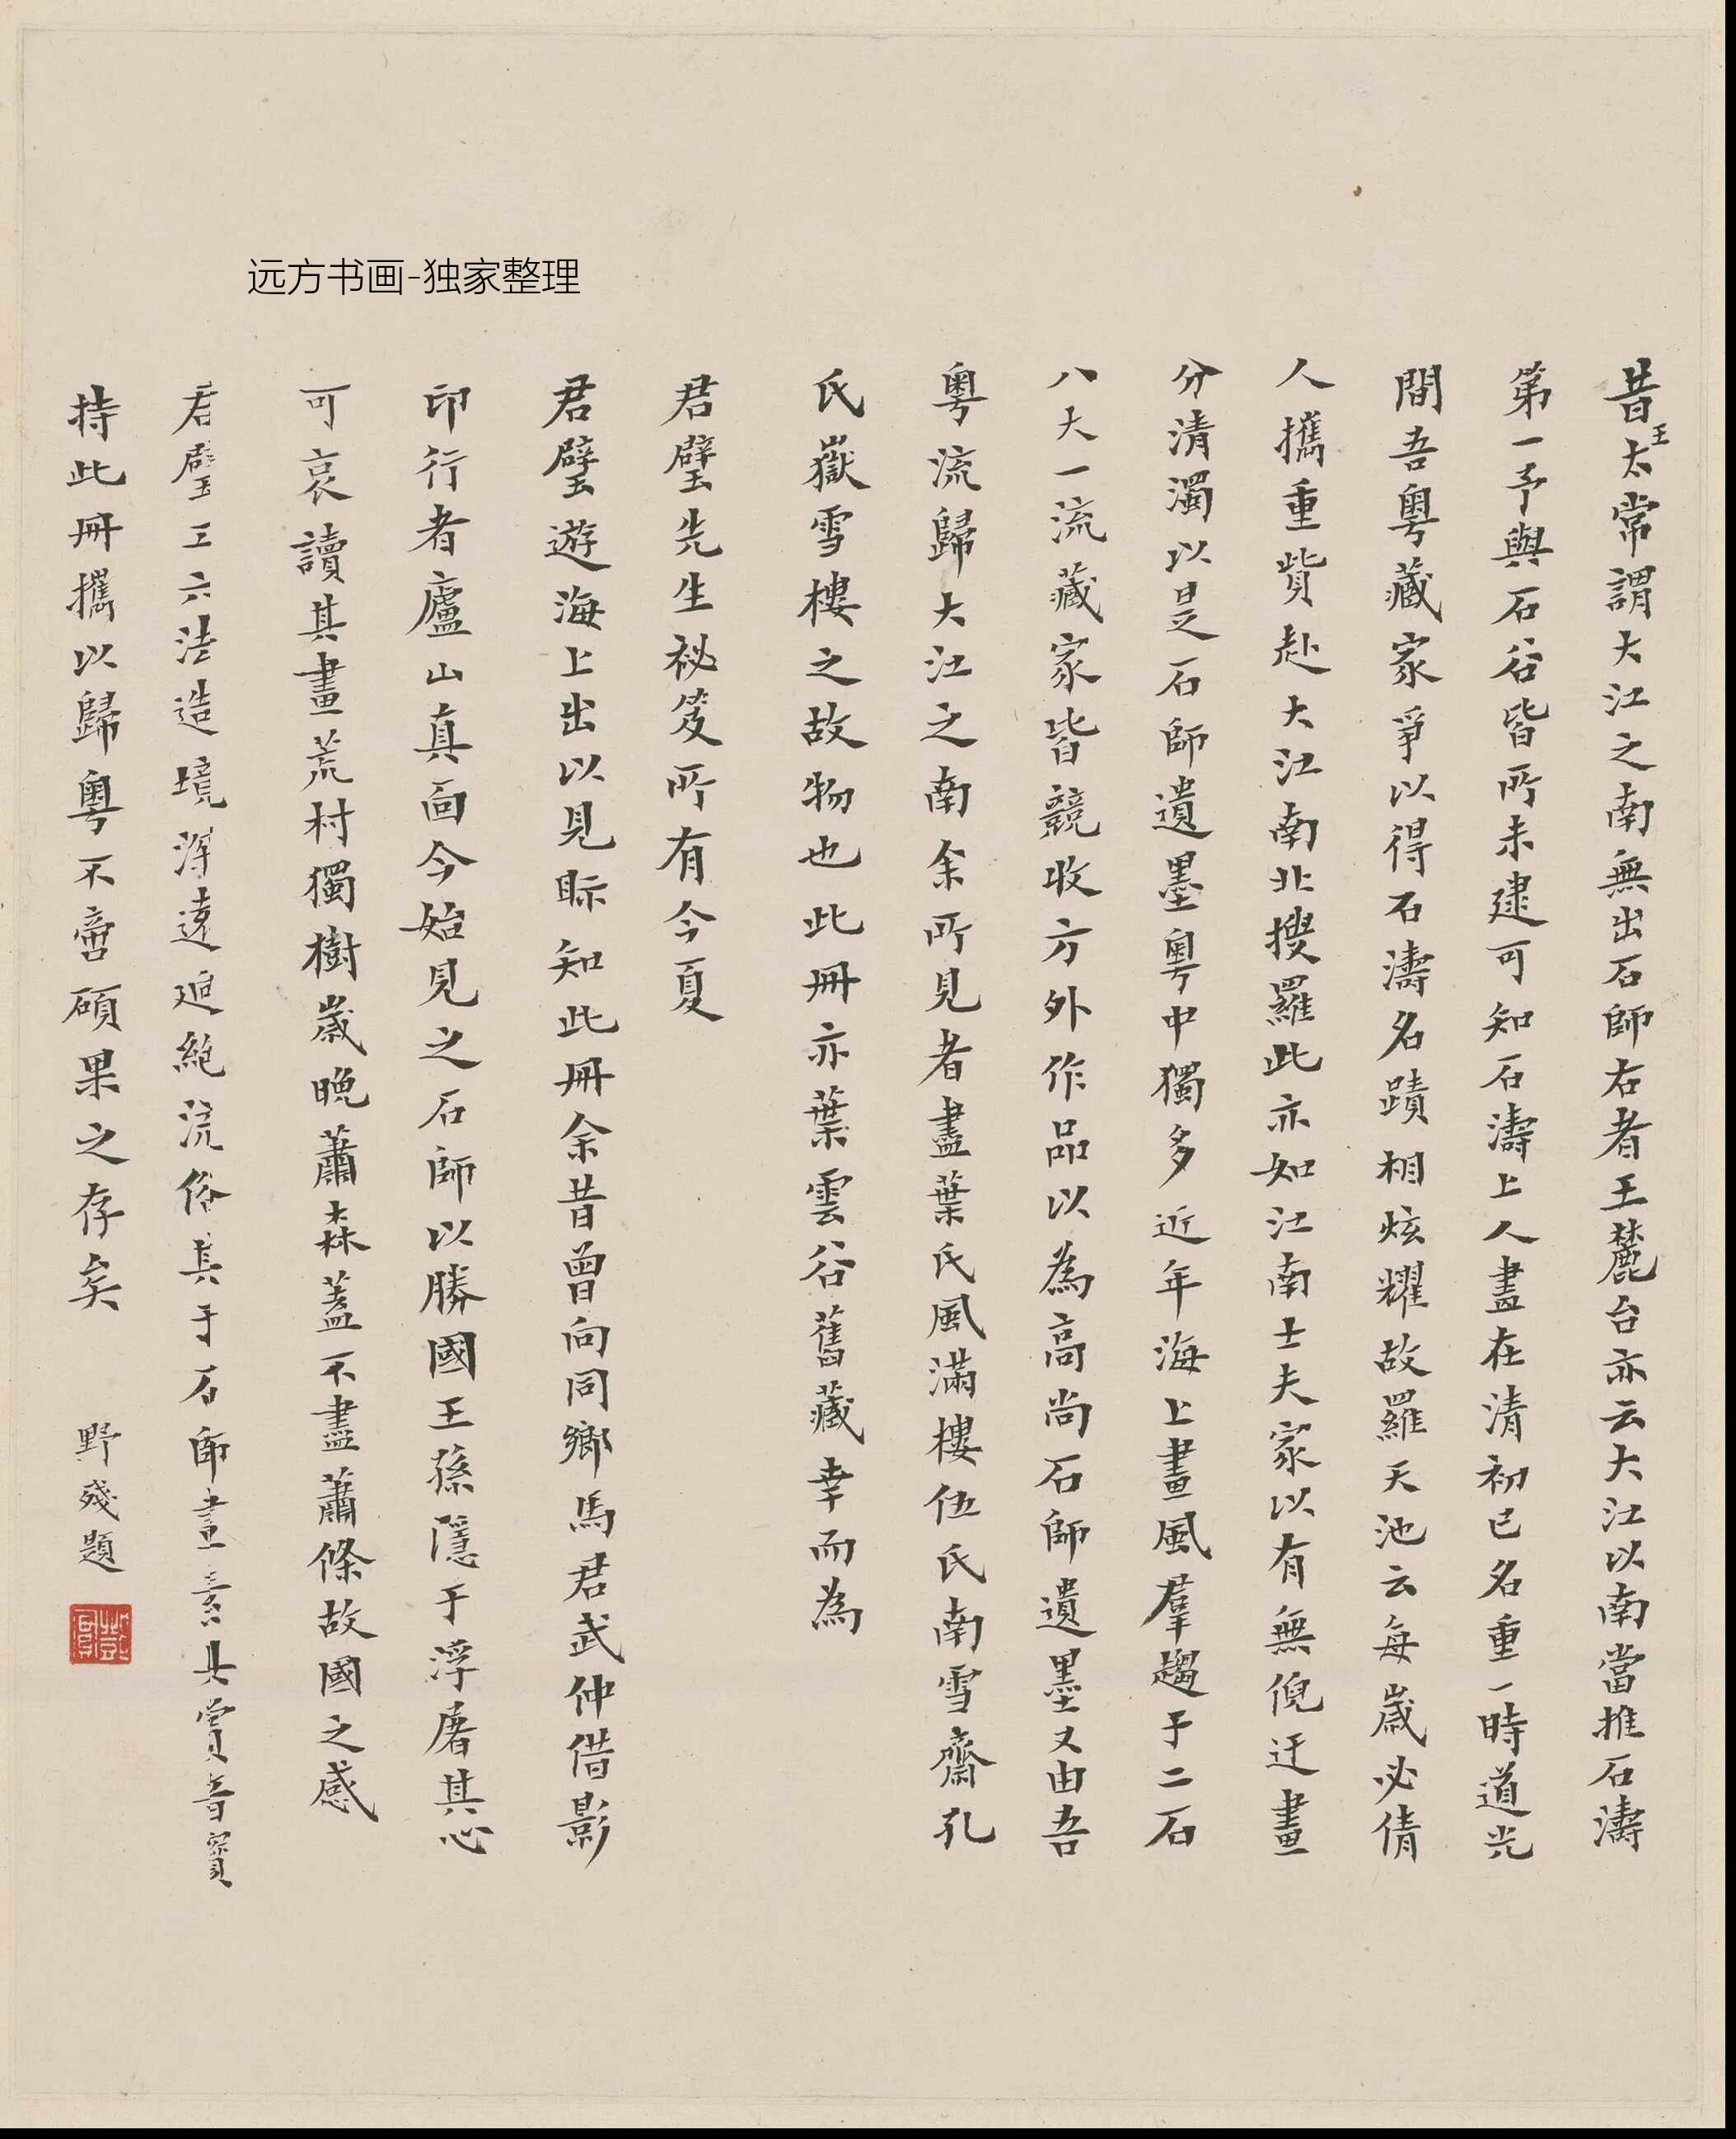 远方书画-独家整理
昔王太常謂大江之南無出石師右者王麓台亦云大江以南當推石濤
第一予與石谷皆所未逮可知石濤上人畫在清初已名重一時道光
間吾粵藏家爭以得石濤名蹟相炫耀故羅天池云每歲必倩
人攜重貲赴大江南北搜羅此亦如江南士夫家以有無倪迂畫
分清濁以是石師遺墨粵中獨多近年海上畫風羣趨于二石
八大一流藏家皆競收方外作品以為高尚石師遺墨又由吾
粵流歸大江之南余所見者盡葉氏風滿樓伍氏南雪齋孔
氏嶽雪樓之故物也此冊亦葉雲谷舊藏幸而為
君璧先生祕笈所有今夏
君璧遊海上出以見眎知此冊余昔曾向同鄉馬君武仲借影
印行者廬山真面今始見之石師以勝國王孫隱于浮屠其心
可哀讀其畫荒村獨樹歲晚蕭森蓋不盡蕭條故國之感
君璧工六法造境渾遠迥絕流俗其于石師畫素具賞音寶
持此冊攜以歸粵不啻碩果之存矣 野殘題